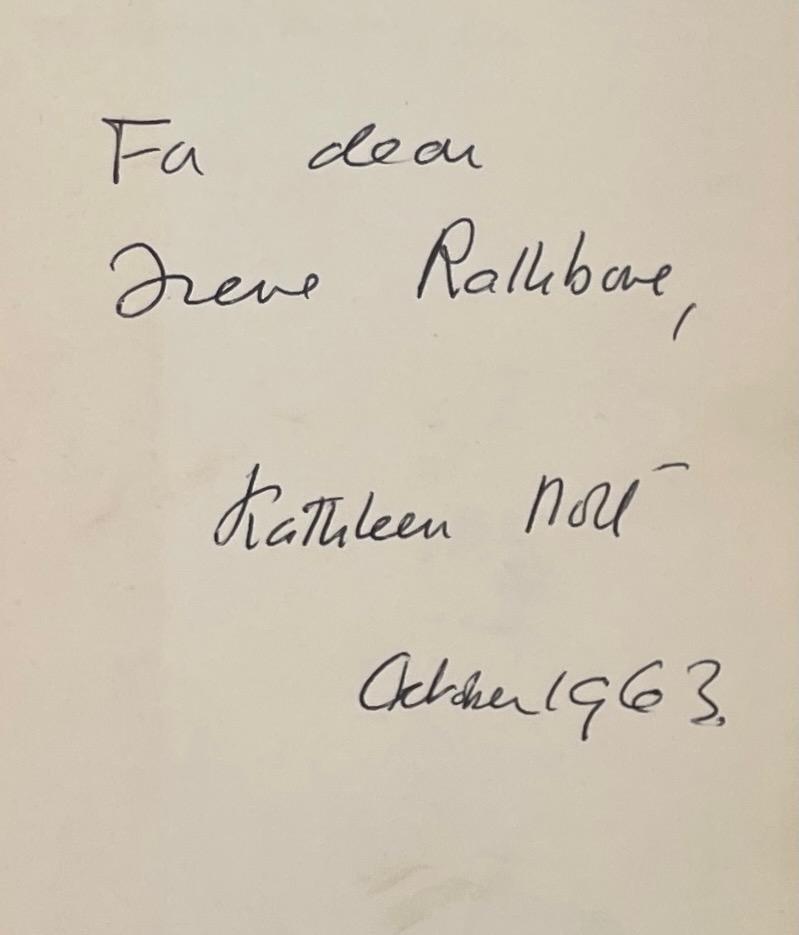 For dear
Irene Rathbone,
Kathleen Nott
October 1963.